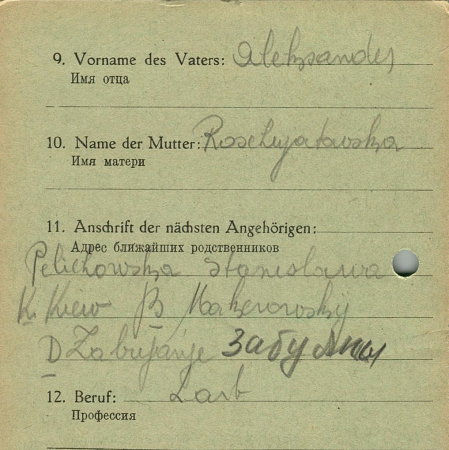 9. Vorname des Vaters: Aleksander
Имя отца
10. Name der Mutter: Roschyatowska
Имя матери
11. Anschrift der nächsten Angehörigen:
Адрес ближайших родственников
Pelichowska Stanislawa
K. Kiew B Makerowskij
D Zabujanje Забуяны
12. Beruf: Larb
Профессия